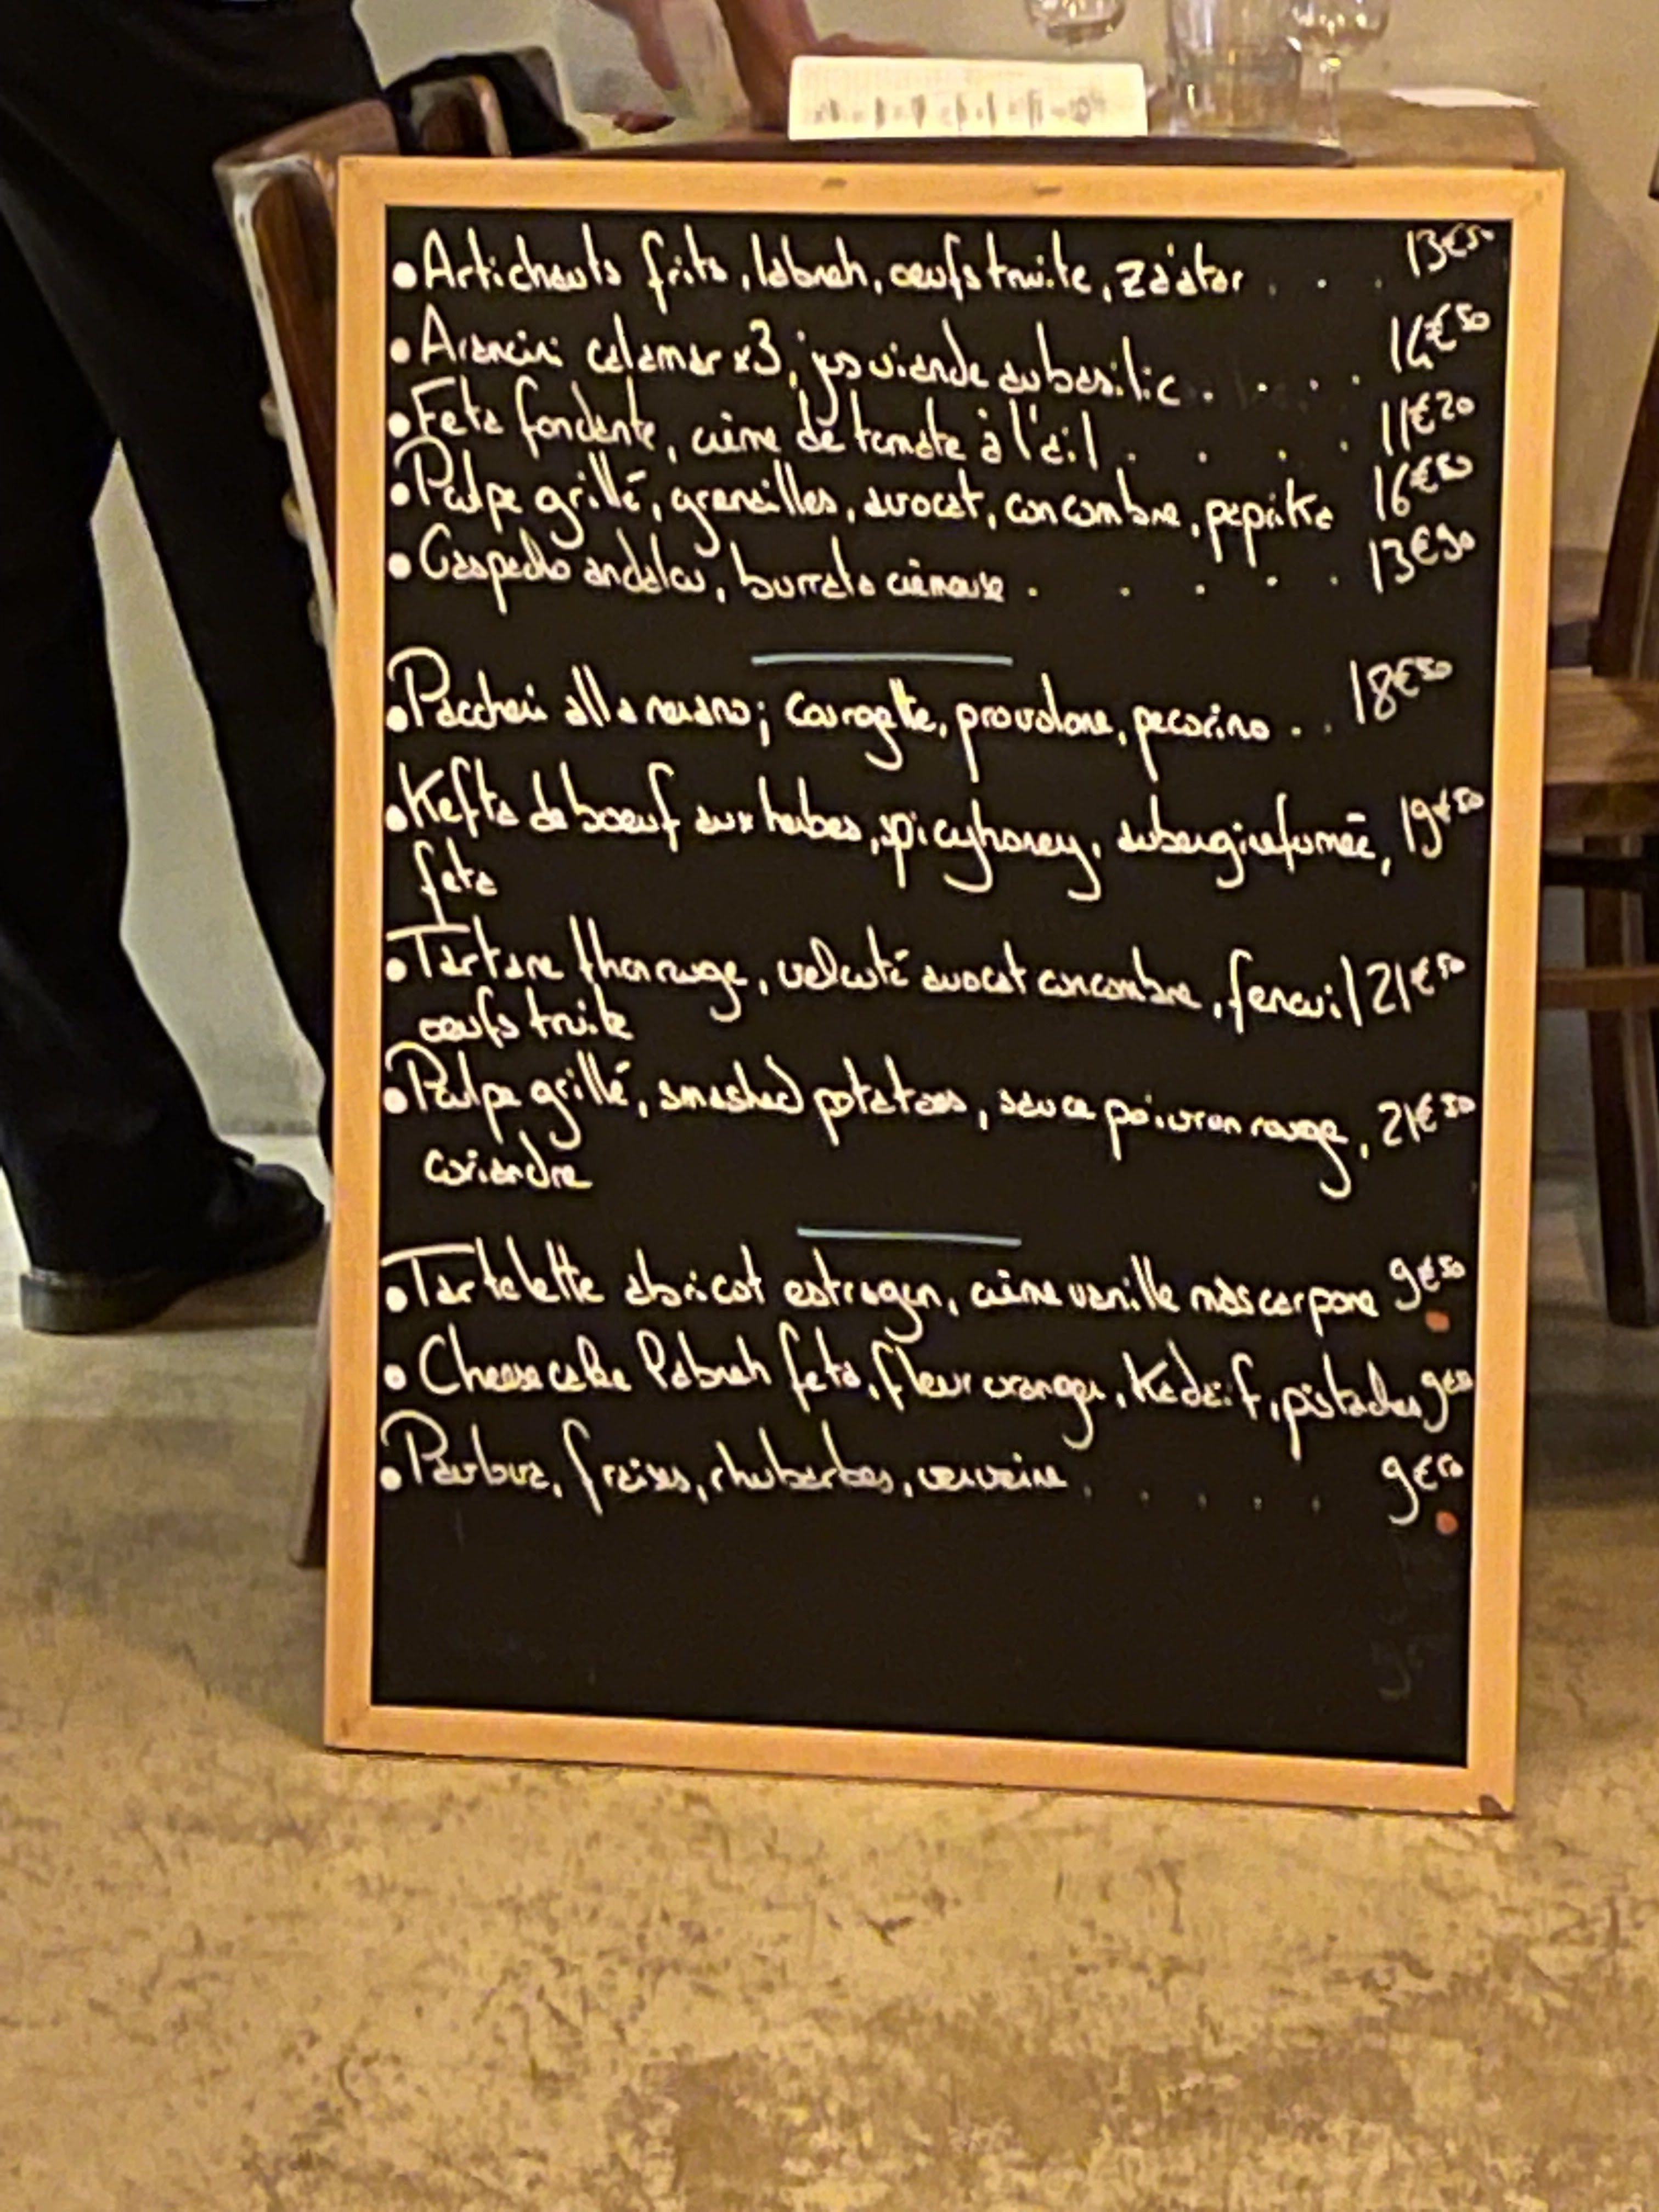 • Artichauts frits, labneh, oeufs truite, zá'atar . . . 13€50
• Arancini calamar x3, jus viande au basilic . . . . 14€50
• Feta fondante, crème de tomate à l'ail . . . . 11€20
• Poulpe grillé, grenailles, avocat, concombre, paprika 16€50
• Gaspacho andalou, burrata crémeuse . . . . . 13€90
• Paccheri alla nerano; courgette, provolone, pecorino . . 18€50
• Kefta de boeuf aux herbes, spicy honey, aubergine fumée, 19€50
feta
• Tartare thon rouge, velouté avocat concombre, fenouil 21€50
oeufs truite
• Poulpe grillé, smashed potatoes, sauce poivron rouge, 21€50
coriandre
• Tartelette abricot estragon, crème vanille mascarpone 9€50
• Cheesecake labneh feta, fleur oranger, Kadaïf, pistaches
• Pavlova, fraises, rhubarbes, verveine . . . . . 9€50